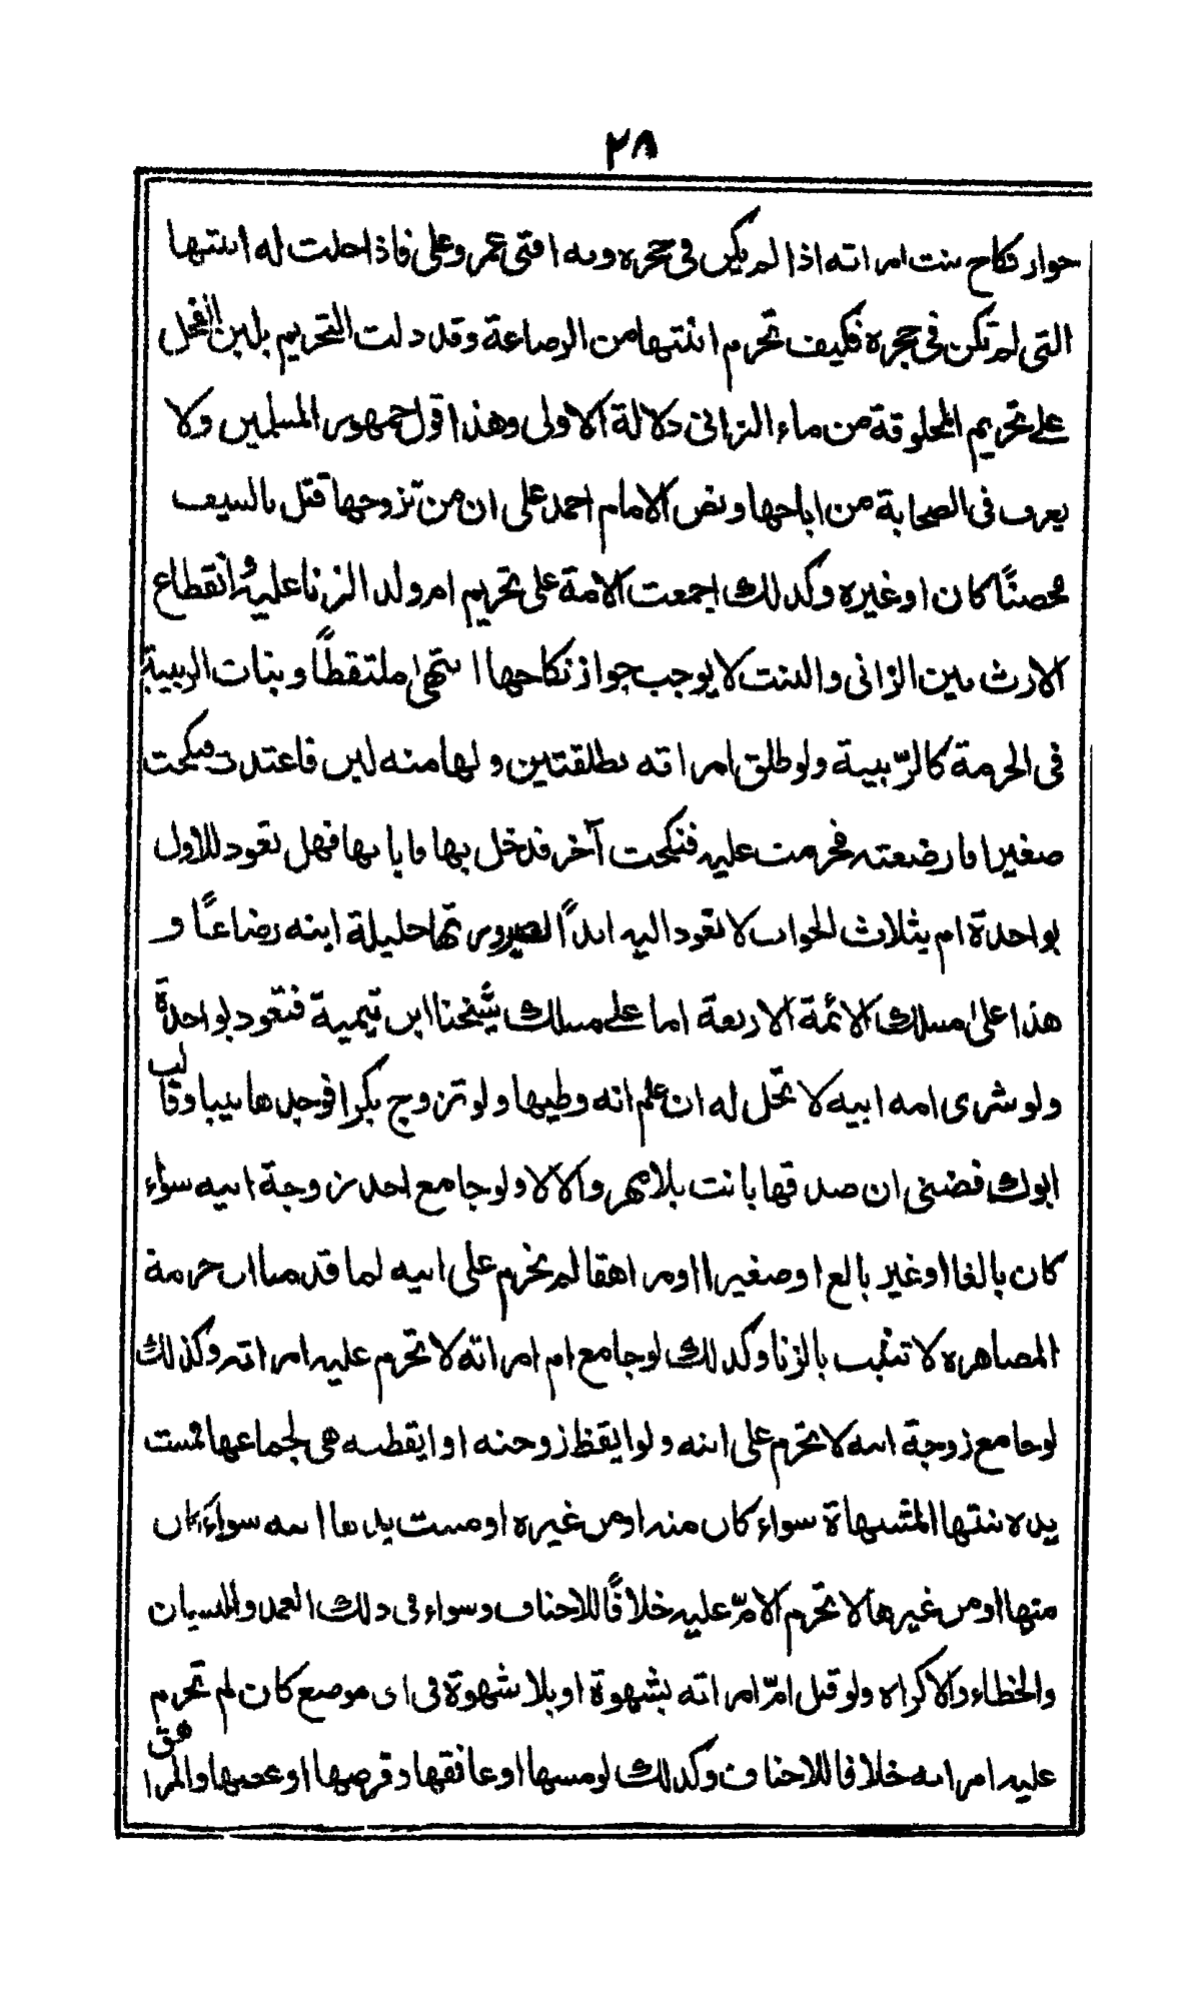 ٢٨
جواز نكاح بنت امراته اذا لم يكن فى حجره وبه افتى عمر وعلى فاذا حلت له ابنتها
التى لم تكن فى حجره فكيف تحرم ابنتها من الرضاعة وقد دلت التحريم بلبن الفحل
على تحريم المخلوقة من ماء الزانى دلالة الاولى وهذا قول جمهور المسلمين ولا
يعرف فى الصحابة من اباحها ونص الامام احمد على ان من تزوجها قتل بالسيف
محصنًا كان او غيره وكذلك اجمعت الامة على تحريم ام ولد الزنا عليه وانقطاع
الارث بين الزانى والبنت لا يوجب جواز نكاحها انتهى ملتقطًا وبنات الربيبة
فى الحرمة كالرّبيبة ولو طلق امراته بطلقتين ولها منه لبن فاعتدت فنكحت
صغيرا فارضعته فحرمت عليه فنكحت آخر فدخل بها فابانها فهل تعود للاول
بواحدة ام بثلاث الجواب لا تعود اليه ابدًا لصيرورتها حليلة ابنه رضاعًا و
هذا على مسلك الائمة الاربعة اما على مسلك شيخنا ابن تيمية فتعود بواحدة
ولو شرى امه ابيه لا تحل له ان علم انه وطيها ولو تزوج بكرا فوجدها ثيبا وقالت
ابوك فضنى ان صدقها بانت بلا مهر والا لا ولو جامع احد زوجة ابيه سواء
كان بالغا او غير بالغ او صغيرا او مراهقا لم تحرم على ابيه لما قدمنا ان حرمة
المصاهره لا تثبت بالزنا وكذلك لو جامع ام امراته لا تحرم عليه امراته وكذلك
لو جامع زوجة ابنه لا تحرم على ابنه ولو ايقظ زوجته او ايقظته هى لجماعها فمست
يده بنتها المشتهاة سواء كان منه او من غيره او مست يدها ابنه سواء كان
منها او من غيرها لا تحرم الامّ عليه خلافًا للاحناف وسواء فى ذلك العمد والنسيان
والخطاء والاكراه ولو قبل امّ امراته بشهوة او بلا شهوة فى اى موضع كان لم تحرم
عليه امراته خلافا للاحناف وكذلك لو مسها او عانقها وقرصها او عضها والمراهق